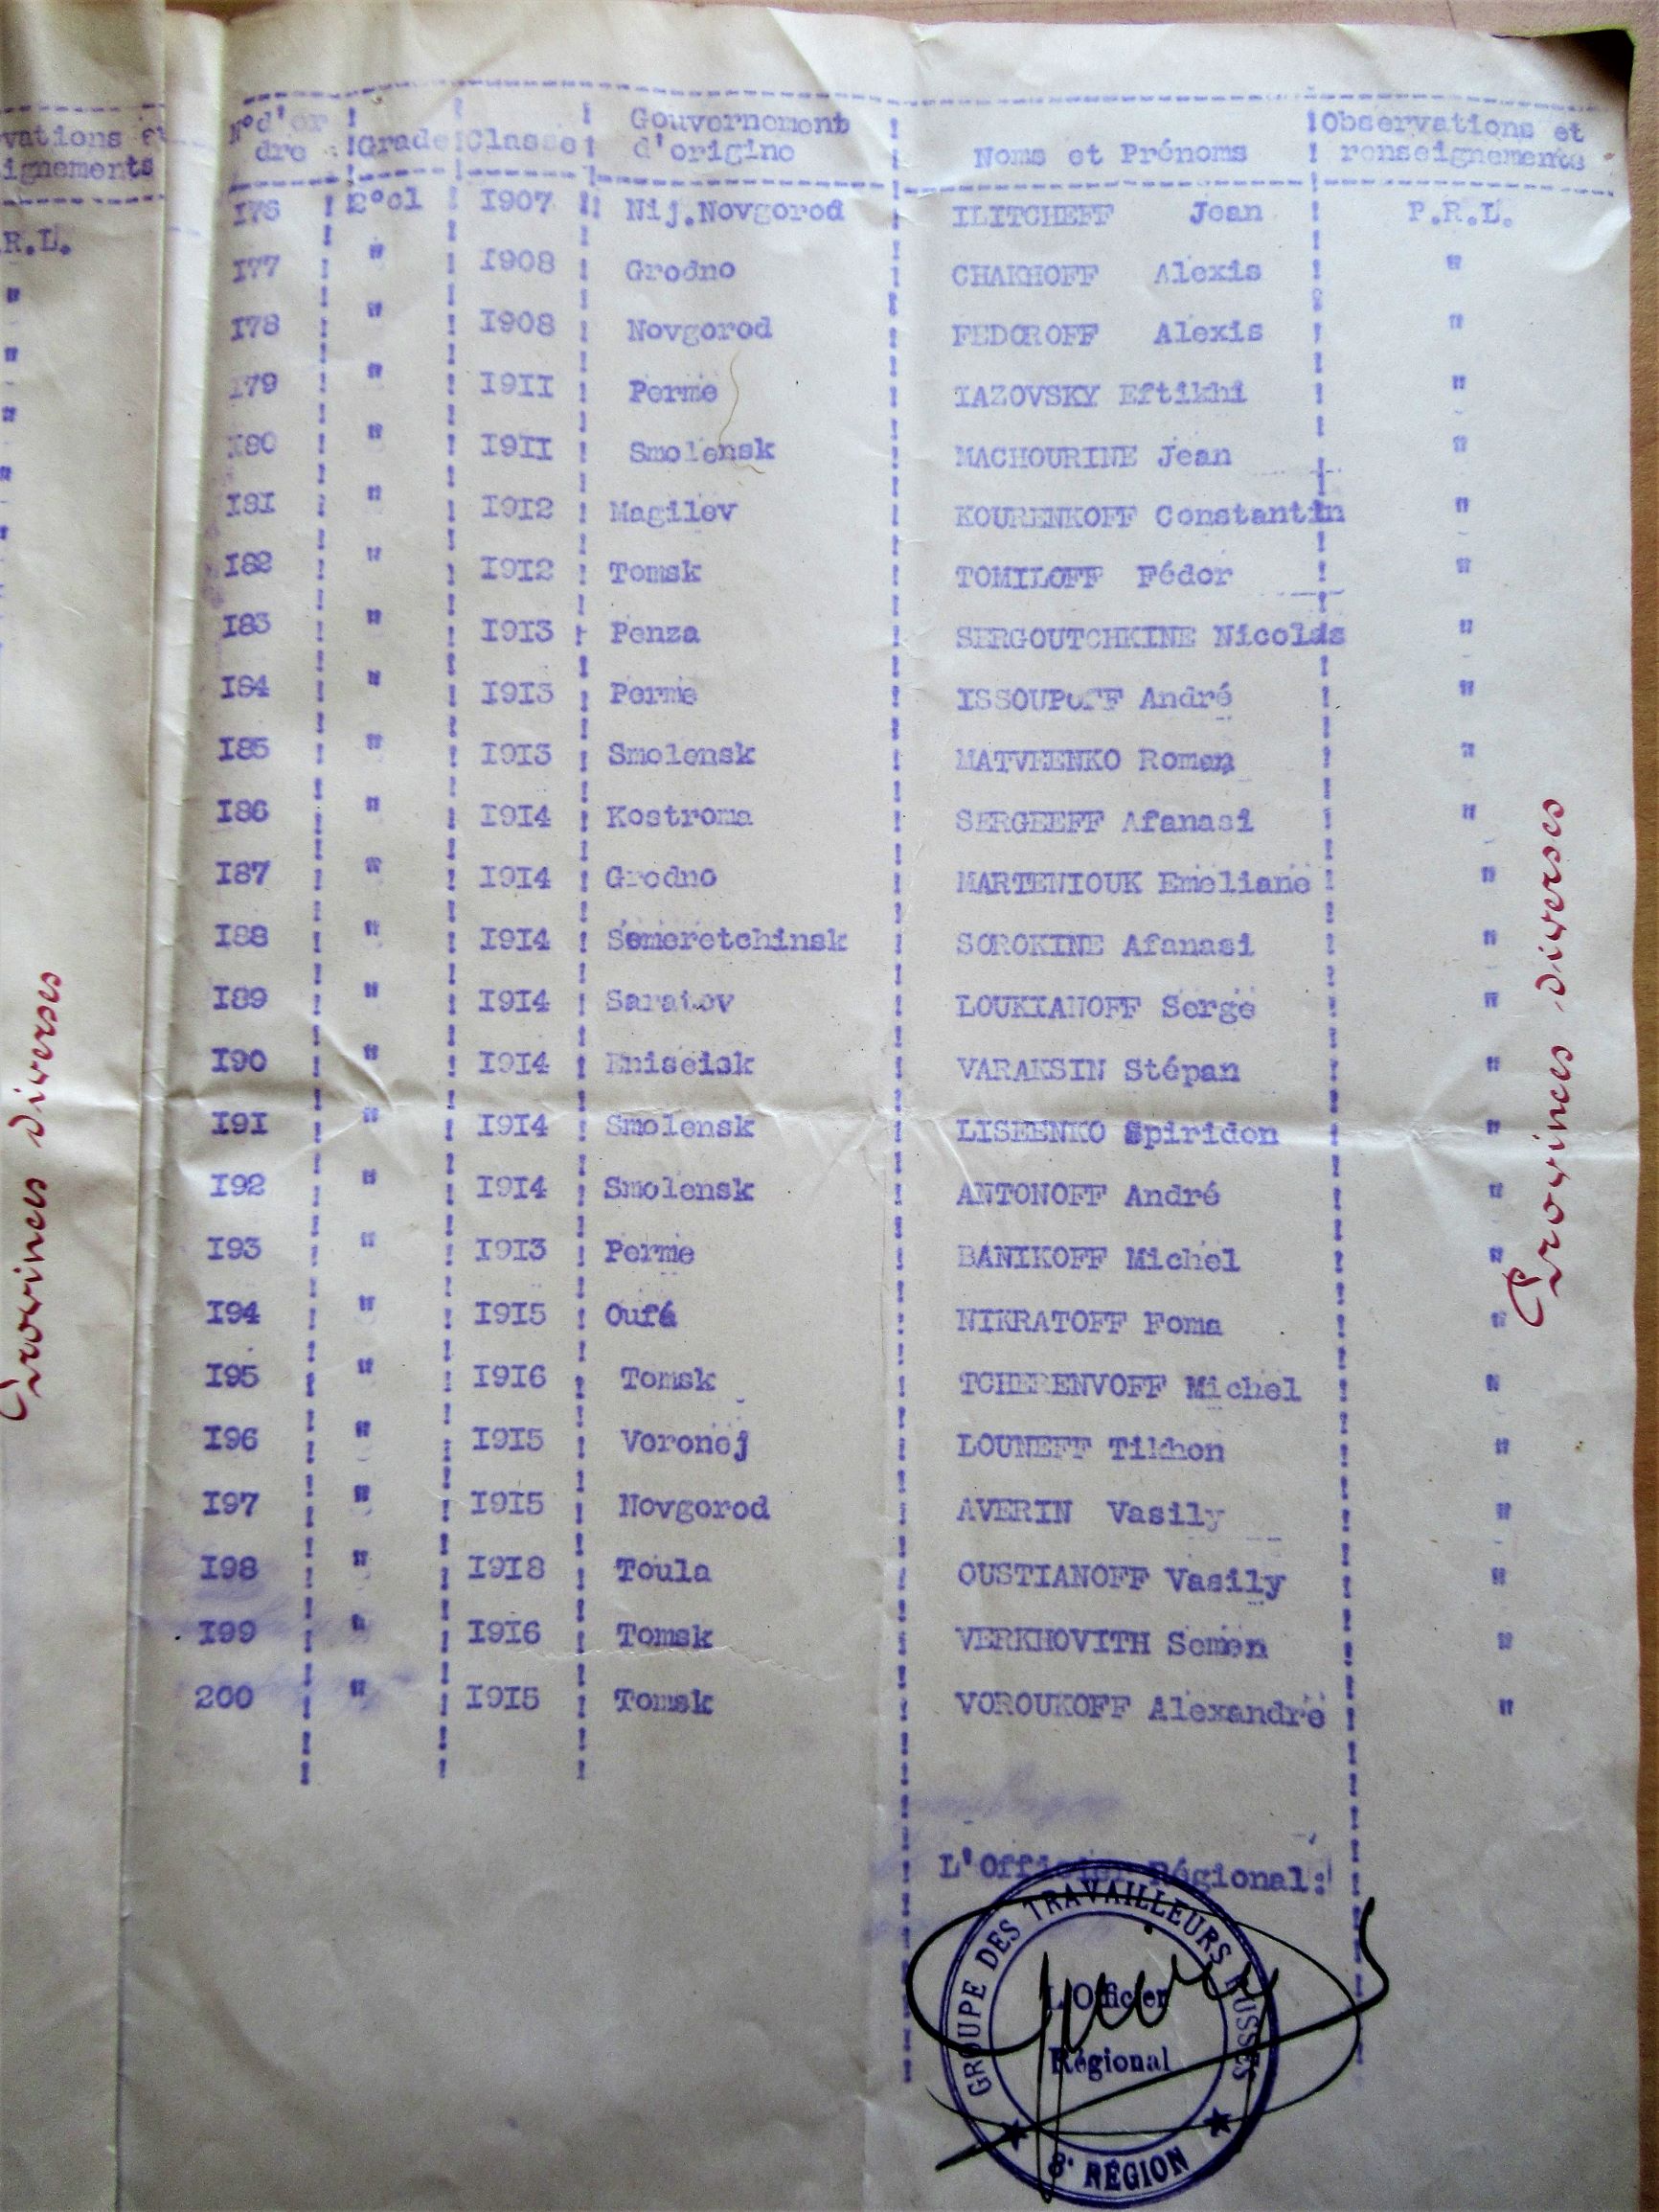 vations et
ignements
R.L.
"
"
"
"
"
Provinces diverses
N°d'or Grade Classe Gouvernement Noms et Prénoms Observations et
dre d'origine renseignements
I76 2°cl I907 Nij.Novgorod ILITCHEFF Jean P.R.L.
I77 " I908 Grodno CHAKHOFF Alexis "
I78 " I908 Novgorod FEDOROFF Alexis "
I79 " I9II Perme IAZOVSKY Eftikhi "
I80 " I9II Smolensk MACHOURINE Jean "
I8I " I9I2 Magilev KOURENKOFF Constantin "
I82 " I9I2 Tomsk TOMILOFF Fédor "
I83 " I9I3 Penza SERGOUTCHKINE Nicolas "
I84 " I9I3 Perme ISSOUPOFF André "
I85 " I9I3 Smolensk MATVEENKO Roman "
I86 " I9I4 Kostroma SERGEEFF Afanasi "
I87 " I9I4 Grodno MARTENIOUK Emeliane "
I88 " I9I4 Semeretchinsk SOROKINE Afanasi "
I89 " I9I4 Saratov LOUKIANOFF Serge "
I90 " I9I4 Eniseisk VARAKSIN Stépan "
I9I " I9I4 Smolensk LISEENKO Spiridon "
I92 " I9I4 Smolensk ANTONOFF André "
I93 " I9I3 Perme BANIKOFF Michel "
I94 " I9I5 Oufá NIKRATOFF Foma "
I95 " I9I6 Tomsk TCHERENVOFF Michel "
I96 " I9I5 Voronej LOUNEFF Tikhon "
I97 " I9I5 Novgorod AVERIN Vasily "
I98 " I9I8 Toula OUSTIANOFF Vasily "
I99 " I9I6 Tomsk VERKHOVITH Semen "
200 " I9I5 Tomsk VOROUKOFF Alexandre "
Provinces diverses
L'Officier Régional:
GROUPE DES TRAVAILLEURS RUSSES
L'Officier
Régional
8e RÉGION